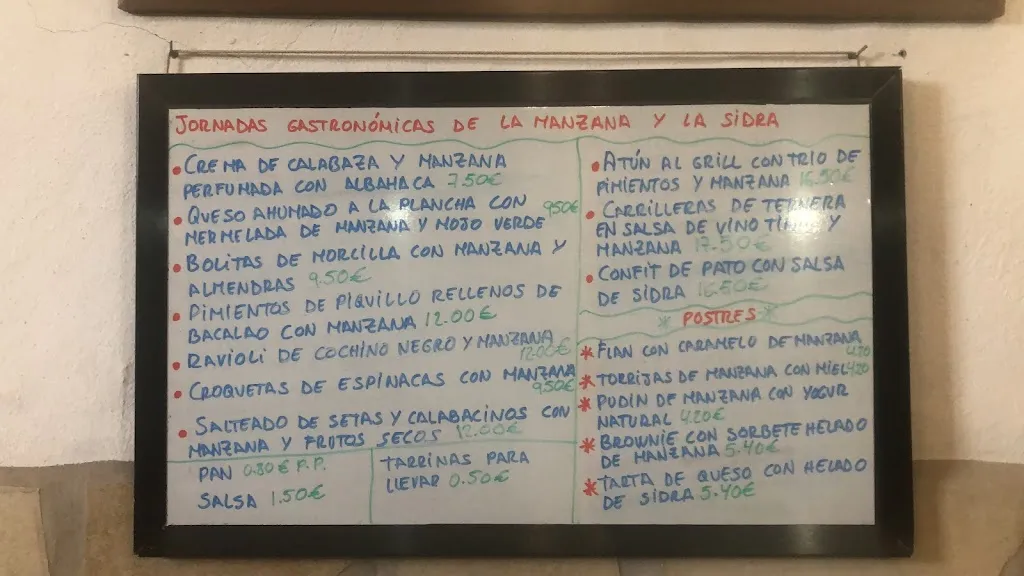 JORNADAS GASTRONÓMICAS DE LA MANZANA Y LA SIDRA
• CREMA DE CALABAZA Y MANZANA
PERFUMADA CON ALBAHACA 7.50€
• QUESO AHUMADO A LA PLANCHA CON 9.50€
MERMELADA DE MANZANA Y MOJO VERDE
• BOLITAS DE MORCILLA CON MANZANA Y
ALMENDRAS 9.50€
• PIMIENTOS DE PIQUILLO RELLENOS DE
BACALAO CON MANZANA 12.00€
• RAVIOLI DE COCHINO NEGRO Y MANZANA
12.00€
• CROQUETAS DE ESPINACAS CON MANZANA
9.50€
• SALTEADO DE SETAS Y CALABACINOS CON
MANZANA Y FRUTOS SECOS 12.00€
PAN 0.80€ P.P.
SALSA 1.50€
TARRINAS PARA
LLEVAR 0.50€
• ATÚN AL GRILL CON TRIO DE
PIMIENTOS Y MANZANA 16.50€
• CARRILLERAS DE TERNERA
EN SALSA DE VINO TINTO Y
MANZANA 17.50€
• CONFIT DE PATO CON SALSA
DE SIDRA 16.50€
* POSTRES *
* FLAN CON CARAMELO DE MANZANA 4.20
* TORRIJAS DE MANZANA CON MIEL 4.20
* PUDIN DE MANZANA CON YOGUR
NATURAL 4.20€
* BROWNIE CON SORBETE HELADO
DE MANZANA 5.40€
* TARTA DE QUESO CON HELADO
DE SIDRA 5.40€